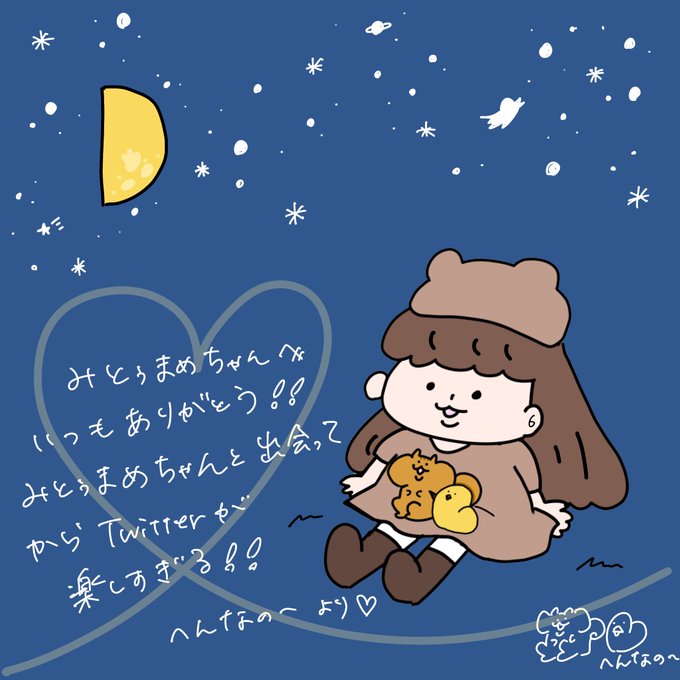 みとぅまめちゃんへ
いつもありがとう!!
みとぅまめちゃんと出会って
からTwitterが
楽しすぎる!!
へんなの〜より♡
へんなの〜